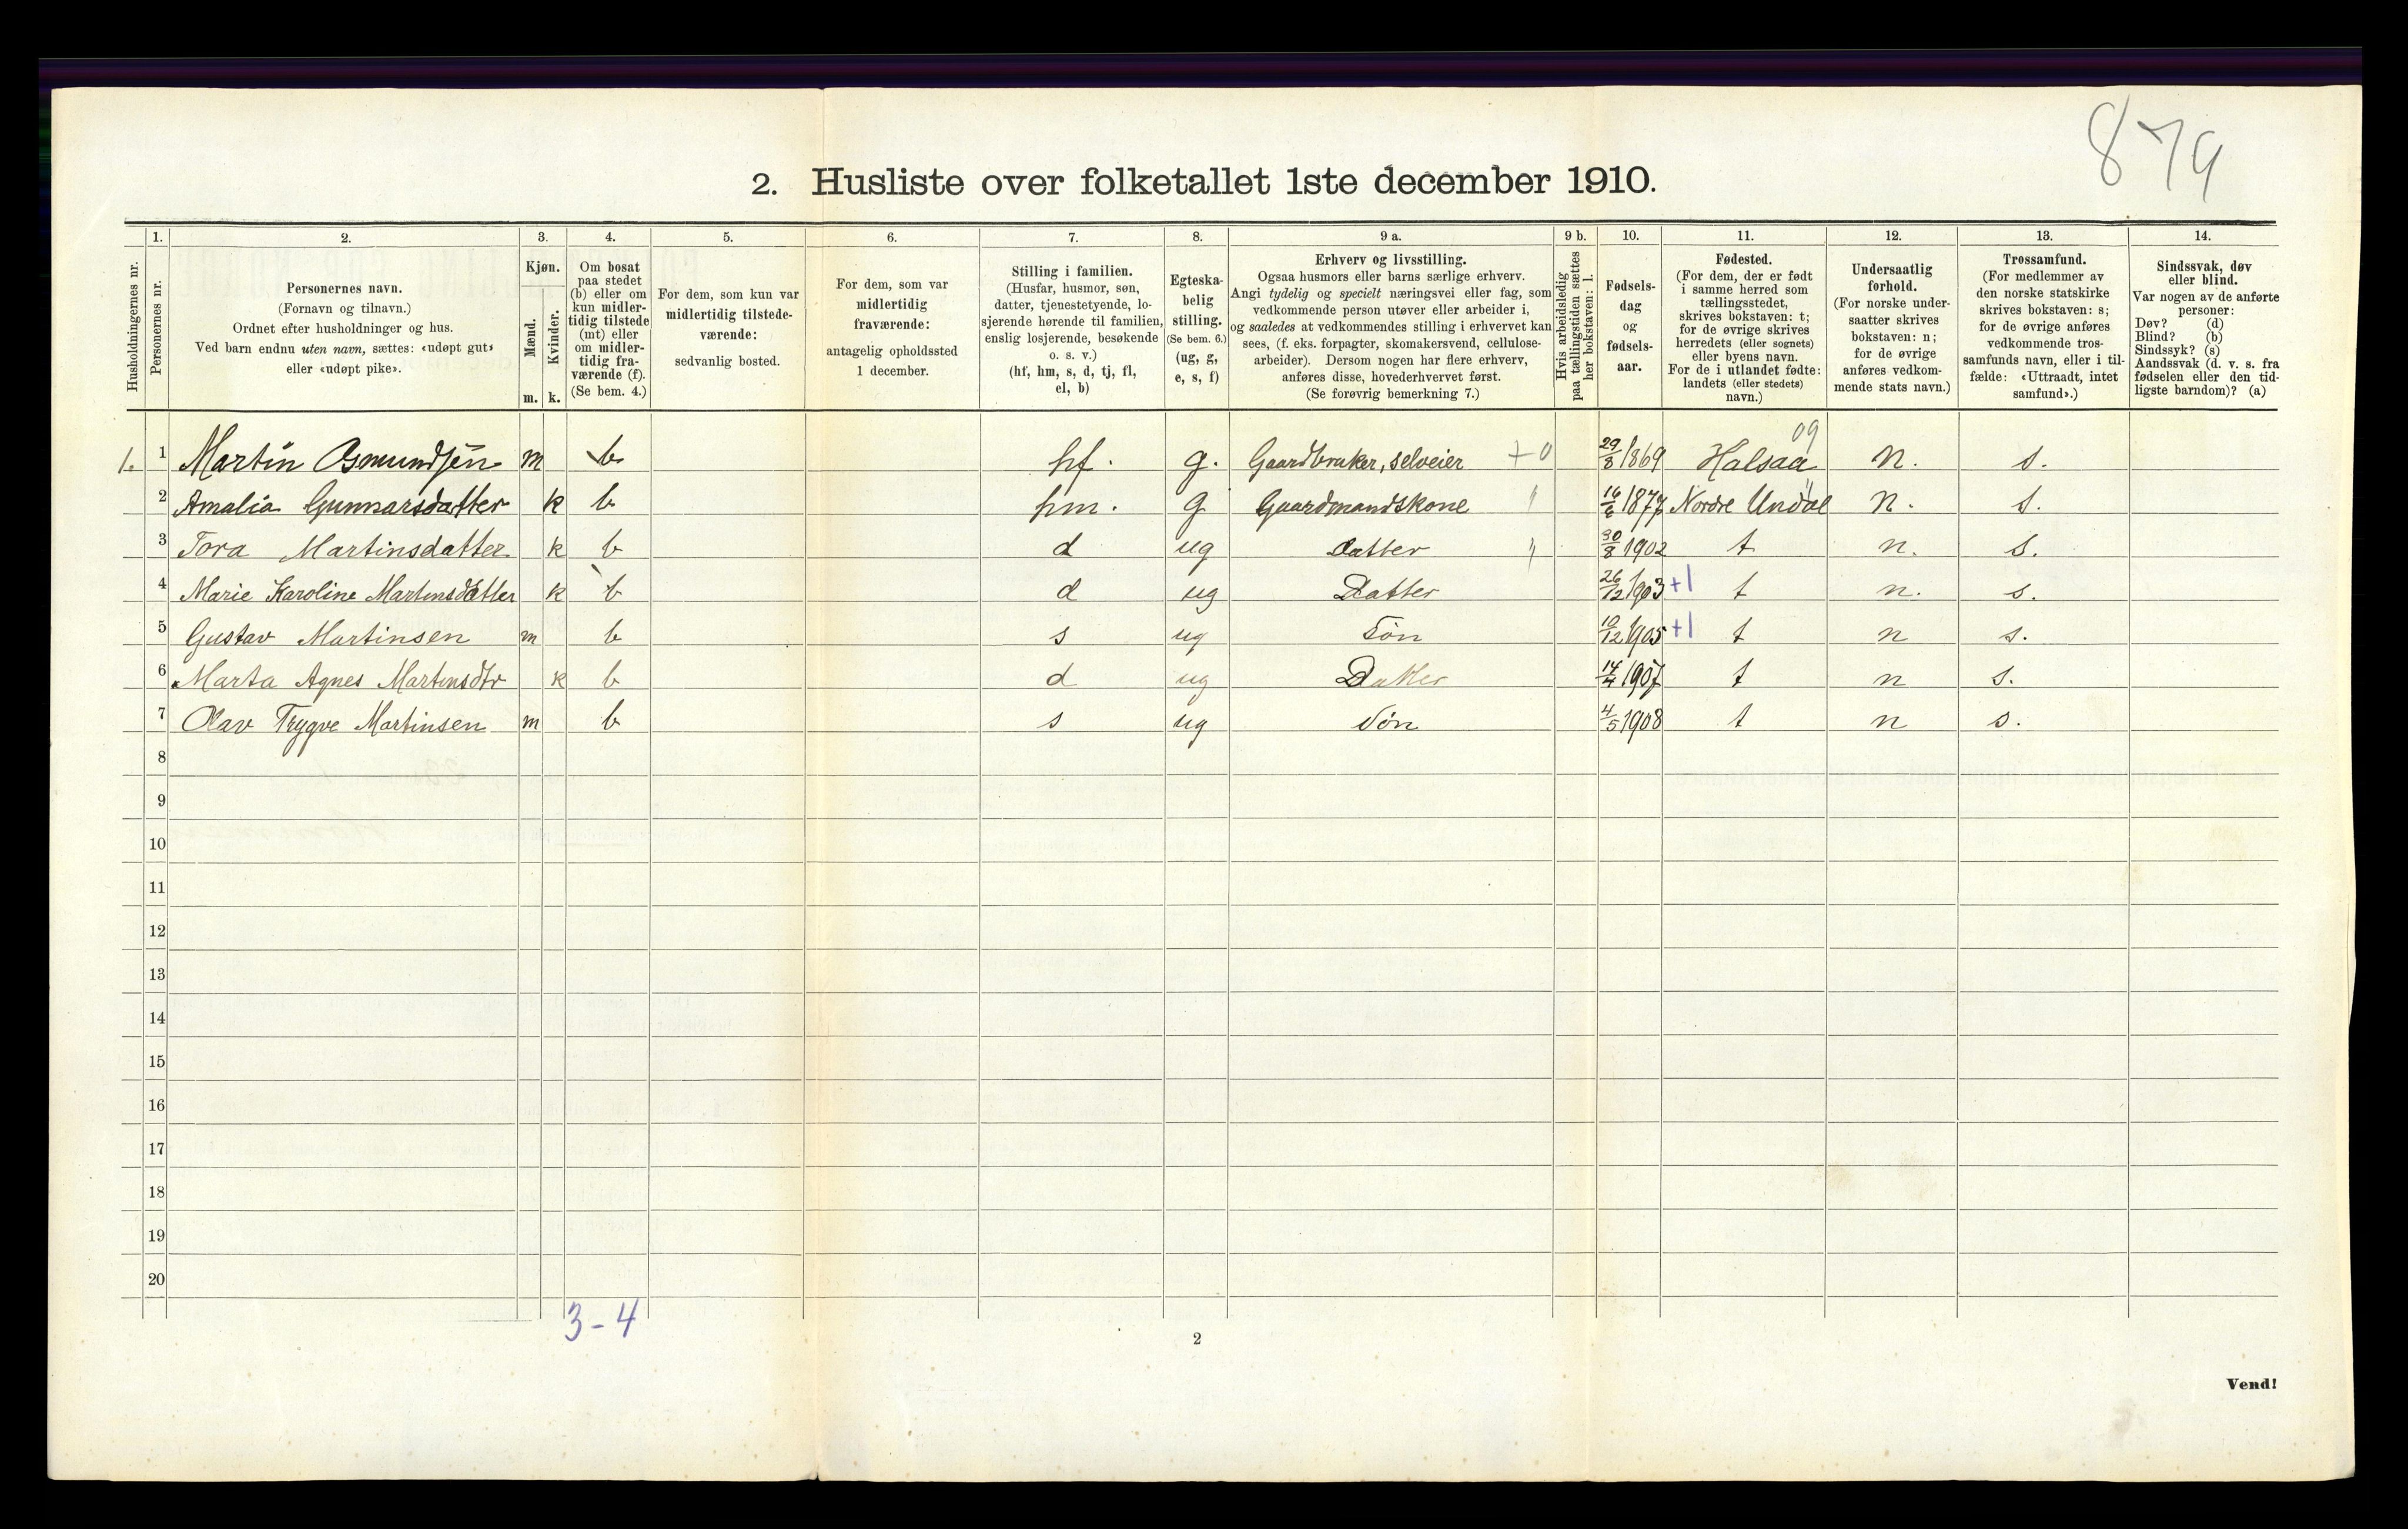 879
2. Husliste over folketallet 1ste december 1910.
1. 2. 3. 4. 5. 6. 7. 8. 9 a. 9 b. 10. 11. 12. 13. 14.
Husholdningernes nr.
Personernes nr.
Personernes navn.
(Fornavn og tilnavn.)
Ordnet efter husholdninger og hus.
Ved barn endnu uten navn, sættes: «udøpt gut»
eller «udøpt pike».
Kjøn.
Mænd.
Kvinder.
m. k.
Om bosat
paa stedet
(b) eller om
kun midler-
tidig tilstede
(mt) eller
om midler-
tidig fra-
værende (f).
(Se bem. 4.)
For dem, som kun var
midlertidig tilstede-
værende:
sedvanlig bosted.
For dem, som var
midlertidig
fraværende:
antagelig opholdssted
1 december.
Stilling i familien.
(Husfar, husmor, søn,
datter, tjenestetyende, lo-
sjerende hørende til familien,
enslig losjerende, besøkende
o. s. v.)
(hf, hm, s, d, tj, fl,
el, b)
Egteska-
belig
stilling.
(Se bem. 6.)
(ug, g,
e, s, f)
Erhverv og livsstilling.
Ogsaa husmors eller barns særlige erhverv.
Angi tydelig og specielt næringsvei eller fag, som
vedkommende person utøver eller arbeider i,
og saaledes at vedkommendes stilling i erhvervet kan
sees, (f. eks. forpagter, skomakersvend, cellulose-
arbeider). Dersom nogen har flere erhverv,
anføres disse, hovederhvervet først.
(Se forøvrig bemerkning 7.)
Hvis arbeidsledig
paa tællingstiden sættes
her bokstaven: l.
Fødsels-
dag
og
fødsels-
aar.
Fødested.
(For dem, der er født
i samme herred som
tællingsstedet,
skrives bokstaven: t;
for de øvrige skrives
herredets (eller sognets)
eller byens navn.
For de i utlandet fødte:
landets (eller stedets)
navn.)
Undersaatlig
forhold.
(For norske under-
saatter skrives
bokstaven: n;
for de øvrige
anføres vedkom-
mende stats navn.)
Trossamfund.
(For medlemmer av
den norske statskirke
skrives bokstaven: s;
for de øvrige anføres
vedkommende tros-
samfunds navn, eller i til-
fælde: «Uttraadt, intet
samfund».)
Sindssvak, døv
eller blind.
Var nogen av de anførte
personer:
Døv? (d)
Blind? (b)
Sindssyk? (s)
Aandssvak (d. v. s. fra
fødselen eller den tid-
ligste barndom)? (a)
09
1. 1 Martin Osmundsen m b hf. g. Gaardbruker, selveier +0 29/8 1869 Halsaa n. s.
2 Amalia Gunnarsdatter k b hm. g Gaardmandskone " 16/6 1877 Nordre Undal n. s.
3 Tora Martinsdatter k b d ug datter " 30/8 1902 t n. s.
4 Marie Karoline Martinsdatter k b d ug Datter 26/12 1903 +1 t n. s.
5 Gustav Martinsen m b s ug Søn 10/12 1905 +1 t n s.
6 Marta Agnes Martinsdtr k b d ug Datter 14/4 1907 t n s.
7 Olav Trygve Martinsen m b s ug Søn 4/5 1908 t n s.
8
9
10
11
12
13
14
15
16
17
18
19
20
3-4
2
Vend!